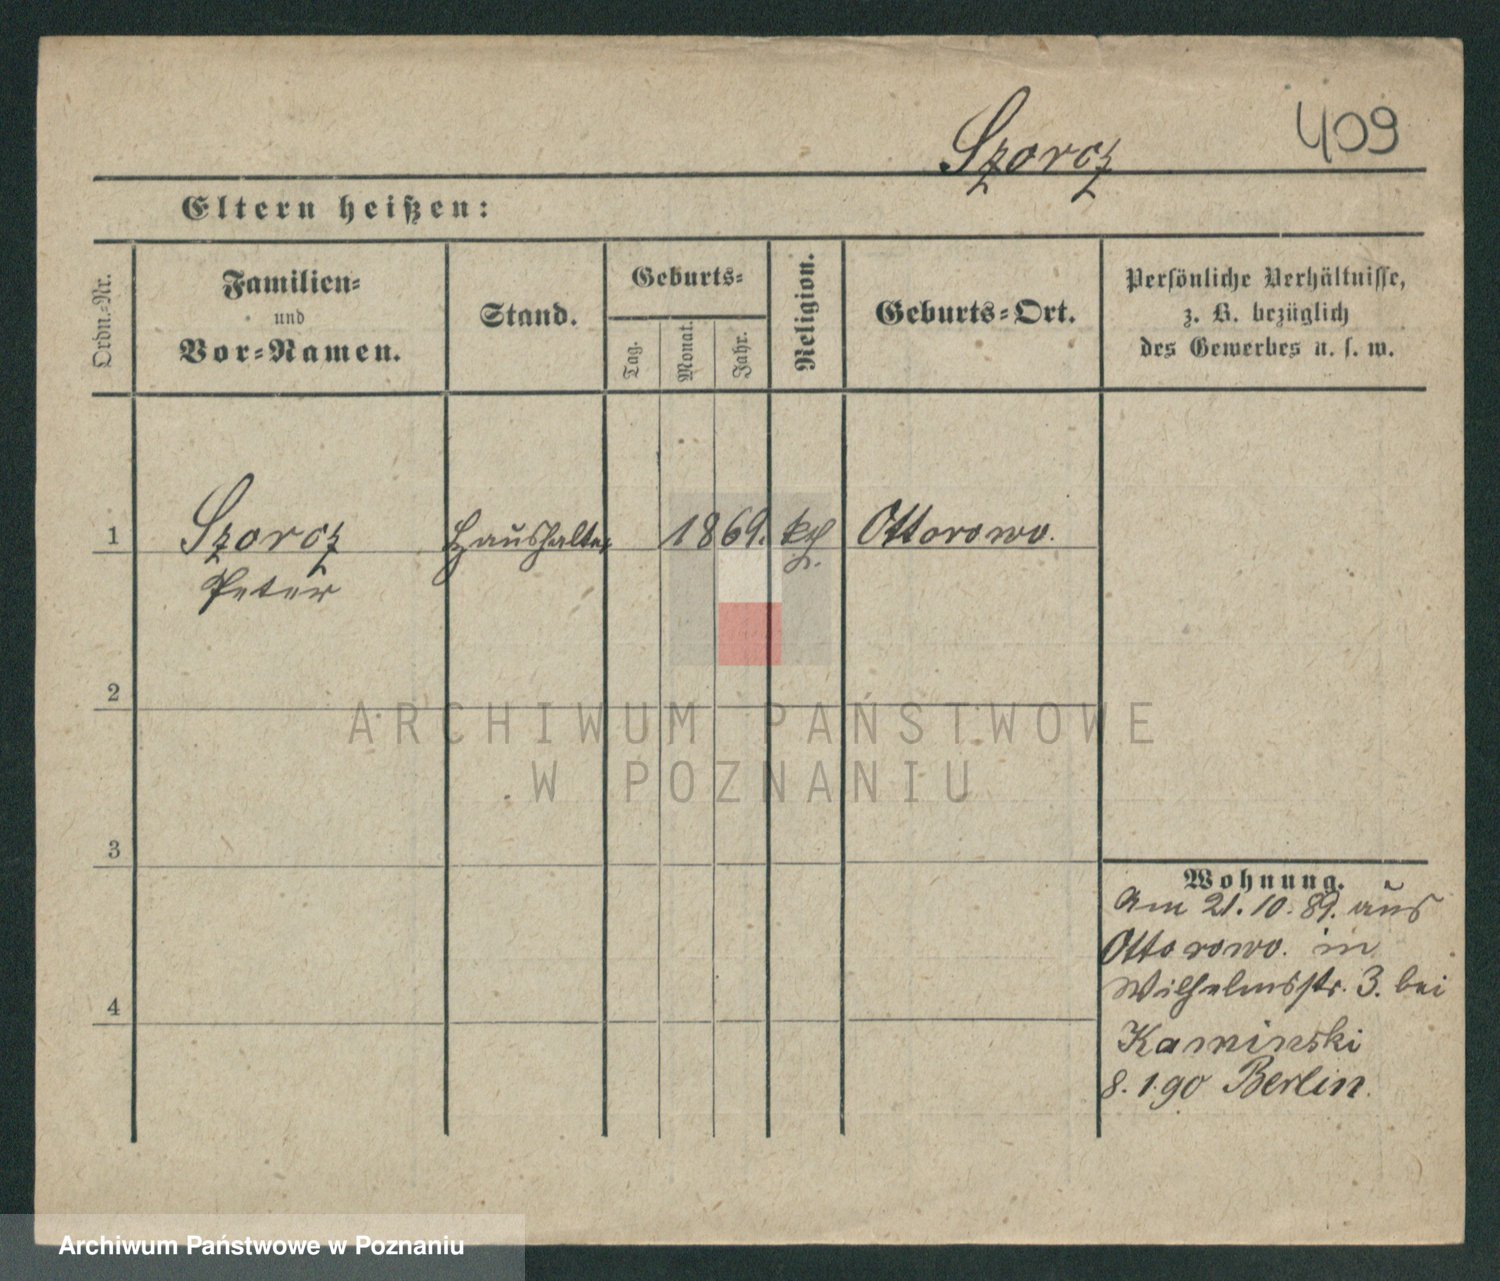 Szorcz
409
Eltern heißen:
Ordn.-Nr.
Familien-
und
Vor-Namen.
Stand.
Geburts-
Tag.
Monat.
Jahr.
Religion.
Geburts-Ort.
Persönliche Verhältnisse,
z. B. bezüglich
des Gewerbes u. s. w.
1
Szorcz
Peter
Haushälter
1869.
kth.
Ottorowo.
2
ARCHIWUM PAŃSTWOWE
W POZNANIU
3
4
Wohnung.
Am 21.10.89. aus
Ottorowo. in
Wilhelmsstr. 3. bei
Kaminski
8.1.90 Berlin.
Archiwum Państwowe w Poznaniu